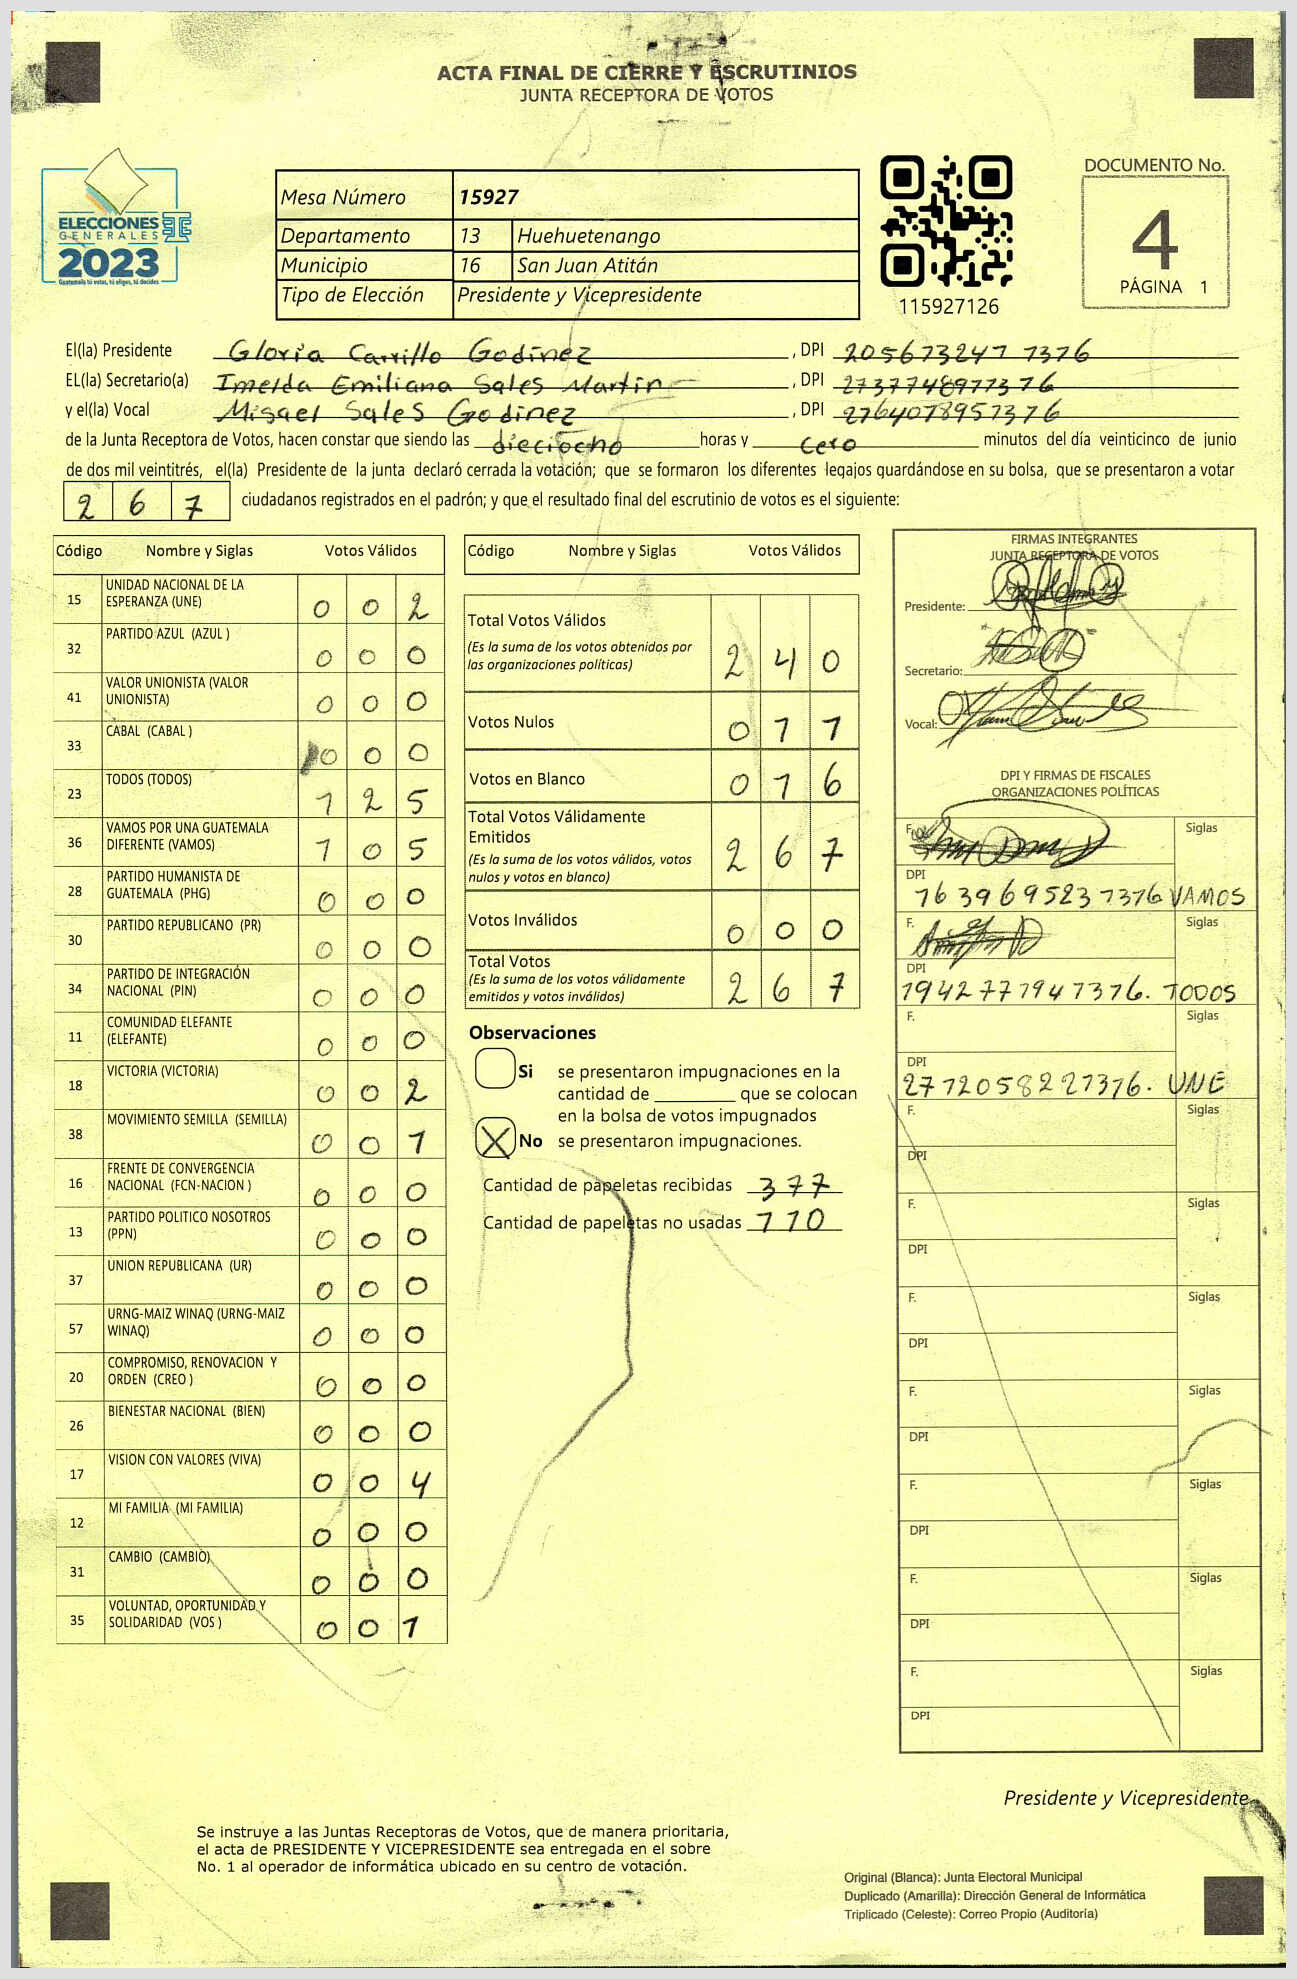 ACTA FINAL DE CIERRE Y ESCRUTINIOS
JUNTA RECEPTORA DE VOTOS
ELECCIONES
GENERALES
2023
Guatemala tú votas, tú eliges, tú decides
Mesa Número 15927
Departamento 13 Huehuetenango
Municipio 16 San Juan Atitán
Tipo de Elección Presidente y Vicepresidente
115927126
DOCUMENTO No.
4
PÁGINA 1
El(la) Presidente Gloria Carrillo Godínez, DPI 205673247 7376
EL(la) Secretario(a) Imelda Emiliana Sales Martín, DPI 2737748977376
y el(la) Vocal Misael Sales Godínez, DPI 2764078957376
de la Junta Receptora de Votos, hacen constar que siendo las dieciocho horas y cero minutos del día veinticinco de junio
de dos mil veintitrés, el(la) Presidente de la junta declaró cerrada la votación; que se formaron los diferentes legajos guardándose en su bolsa, que se presentaron a votar
2 6 7 ciudadanos registrados en el padrón; y que el resultado final del escrutinio de votos es el siguiente:
Código Nombre y Siglas Votos Válidos
15 UNIDAD NACIONAL DE LA ESPERANZA (UNE) 0 0 2
32 PARTIDO AZUL (AZUL ) 0 0 0
41 VALOR UNIONISTA (VALOR UNIONISTA) 0 0 0
33 CABAL (CABAL ) 0 0 0
23 TODOS (TODOS) 1 2 5
36 VAMOS POR UNA GUATEMALA DIFERENTE (VAMOS) 1 0 5
28 PARTIDO HUMANISTA DE GUATEMALA (PHG) 0 0 0
30 PARTIDO REPUBLICANO (PR) 0 0 0
34 PARTIDO DE INTEGRACIÓN NACIONAL (PIN) 0 0 0
11 COMUNIDAD ELEFANTE (ELEFANTE) 0 0 0
18 VICTORIA (VICTORIA) 0 0 2
38 MOVIMIENTO SEMILLA (SEMILLA) 0 0 1
16 FRENTE DE CONVERGENCIA NACIONAL (FCN-NACION ) 0 0 0
13 PARTIDO POLITICO NOSOTROS (PPN) 0 0 0
37 UNION REPUBLICANA (UR) 0 0 0
57 URNG-MAIZ WINAQ (URNG-MAIZ WINAQ) 0 0 0
20 COMPROMISO, RENOVACION Y ORDEN (CREO ) 0 0 0
26 BIENESTAR NACIONAL (BIEN) 0 0 0
17 VISION CON VALORES (VIVA) 0 0 4
12 MI FAMILIA (MI FAMILIA) 0 0 0
31 CAMBIO (CAMBIO) 0 0 0
35 VOLUNTAD, OPORTUNIDAD Y SOLIDARIDAD (VOS ) 0 0 1
Código Nombre y Siglas Votos Válidos
Total Votos Válidos 2 4 0
(Es la suma de los votos obtenidos por
las organizaciones políticas)
Votos Nulos 0 1 1
Votos en Blanco 0 1 6
Total Votos Válidamente
Emitidos 2 6 7
(Es la suma de los votos válidos, votos
nulos y votos en blanco)
Votos Inválidos 0 0 0
Total Votos 2 6 7
(Es la suma de los votos válidamente
emitidos y votos inválidos)
Observaciones
Si se presentaron impugnaciones en la
cantidad de ________ que se colocan
en la bolsa de votos impugnados
X No se presentaron impugnaciones.
Cantidad de papeletas recibidas 377
Cantidad de papeletas no usadas 110
FIRMAS INTEGRANTES
JUNTA RECEPTORA DE VOTOS
Presidente:
Secretario:
Vocal:
DPI Y FIRMAS DE FISCALES
ORGANIZACIONES POLÍTICAS
F. Siglas
DPI
1639695237376 VAMOS
F. Siglas
DPI
1942771947376. TODOS
F. Siglas
DPI
2772058227376. UNE
F. Siglas
DPI
F. Siglas
DPI
F. Siglas
DPI
F. Siglas
DPI
F. Siglas
DPI
F. Siglas
DPI
F. Siglas
DPI
Presidente y Vicepresidente
Se instruye a las Juntas Receptoras de Votos, que de manera prioritaria,
el acta de PRESIDENTE Y VICEPRESIDENTE sea entregada en el sobre
No. 1 al operador de informática ubicado en su centro de votación.
Original (Blanca): Junta Electoral Municipal
Duplicado (Amarilla): Dirección General de Informática
Triplicado (Celeste): Correo Propio (Auditoría)